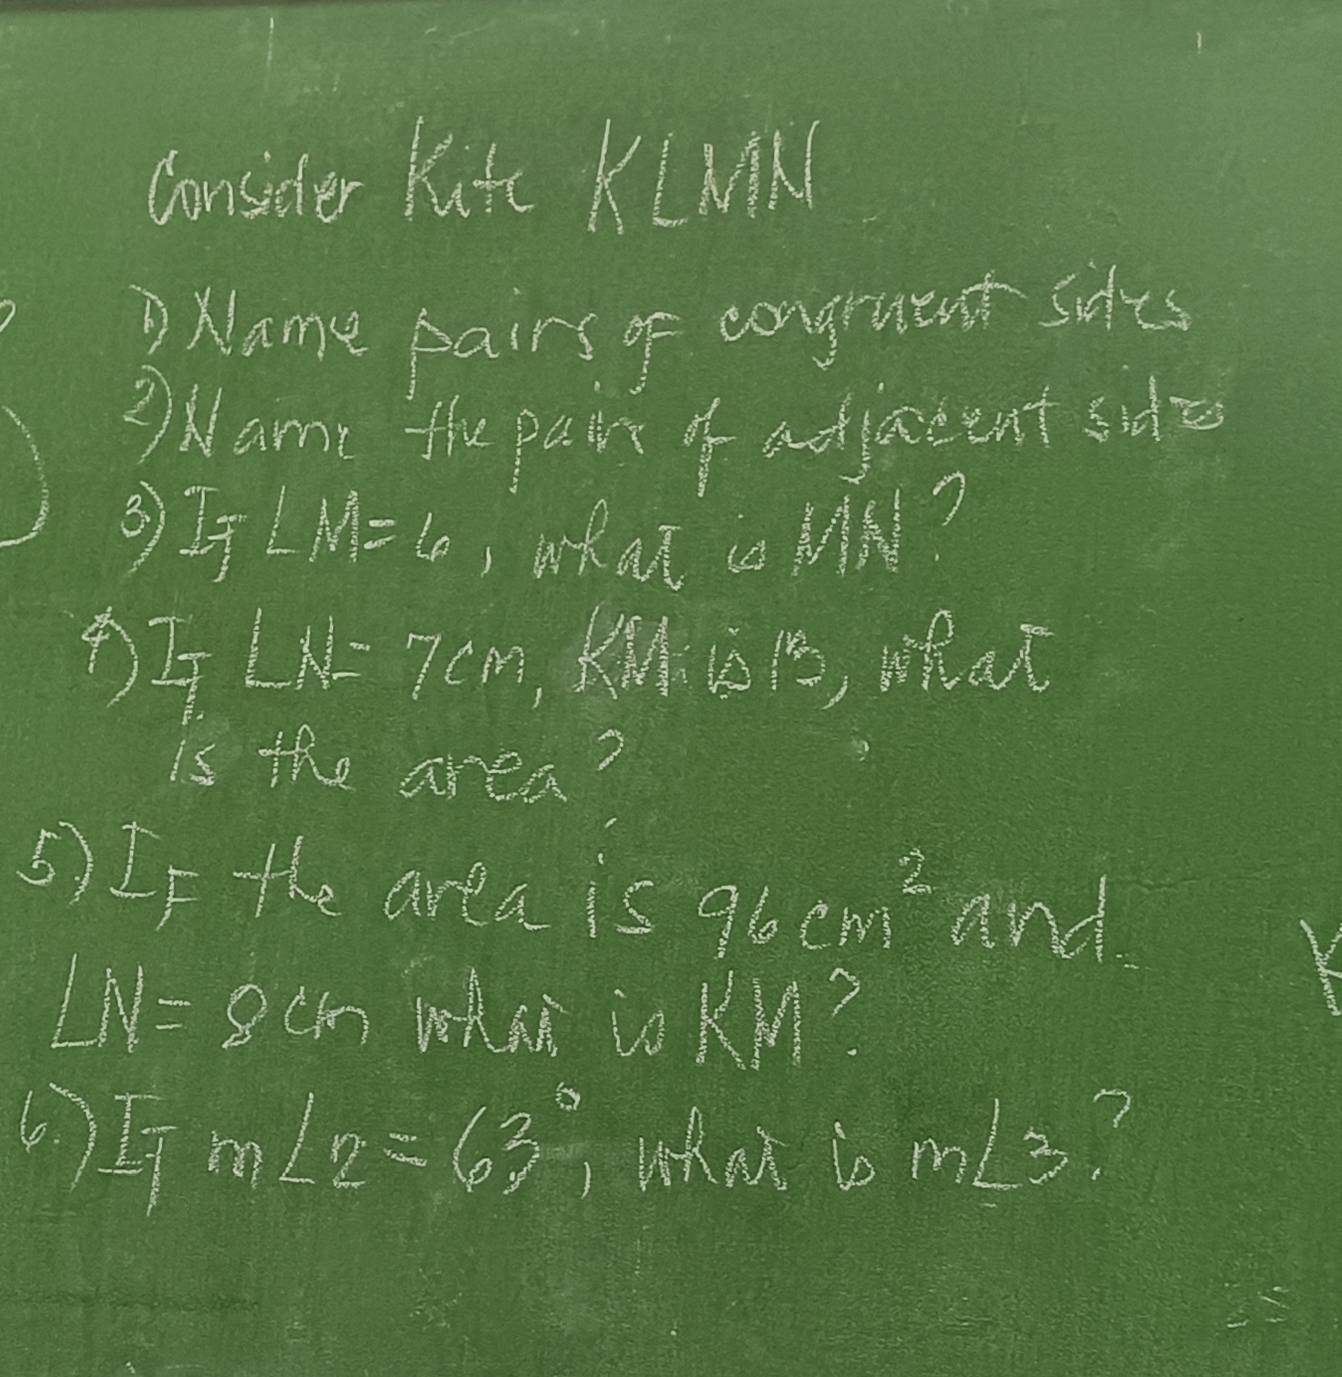 Consider Kite KLMN
1) Name pairs of congruent sides
2) Name the pairs of adjacent sides
3) If LM=6, what is MN?
4) If LN=7cm, KM is 13, what
is the area?
5.) IF the area is 96cm² and
LN=8cm what is KM?
6.) If m∠2=63°, what is m∠3?
K